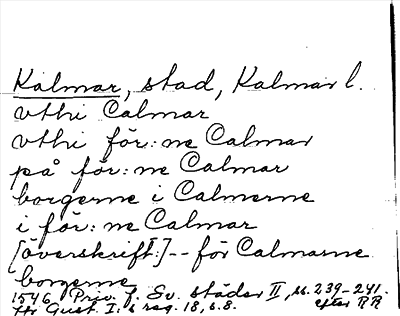 Kalmar, stad, Kalmar l.
vthi Calmar
vthi för:ne Calmar
på för:ne Calmar
borgerne i Calmerne
i för:ne Calmar
[överskrift:]--för Calmarne
borgerne
1546 Priv. f. Sv. städer II, ss. 239-241.
fr Gust. I:s reg. 18, s.8. efter RR